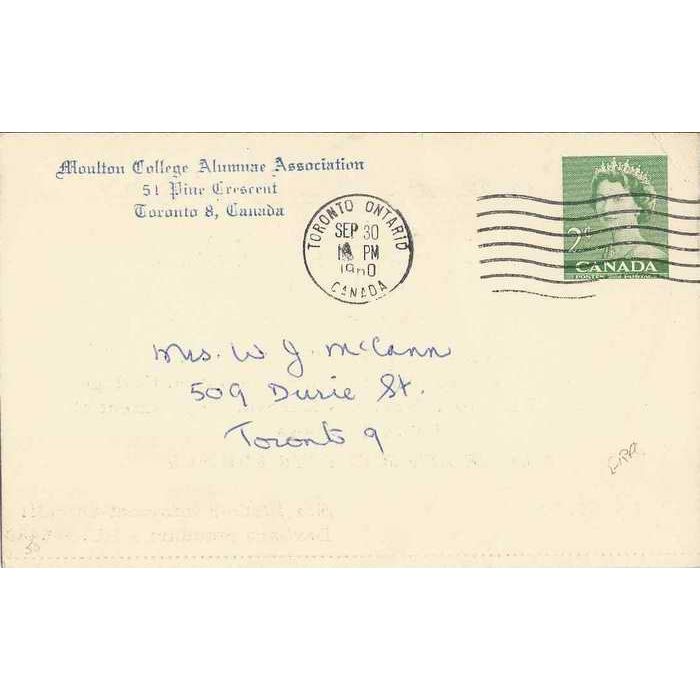 Moulton College Alumnae Association
51 Pine Crescent
Toronto 8, Canada
TORONTO ONTARIO
SEP 30
PM
1960
CANADA
2¢
CANADA
POSTES POSTAGE
Mrs. W. J. McCann
509 Durie St.
Toronto 9
50